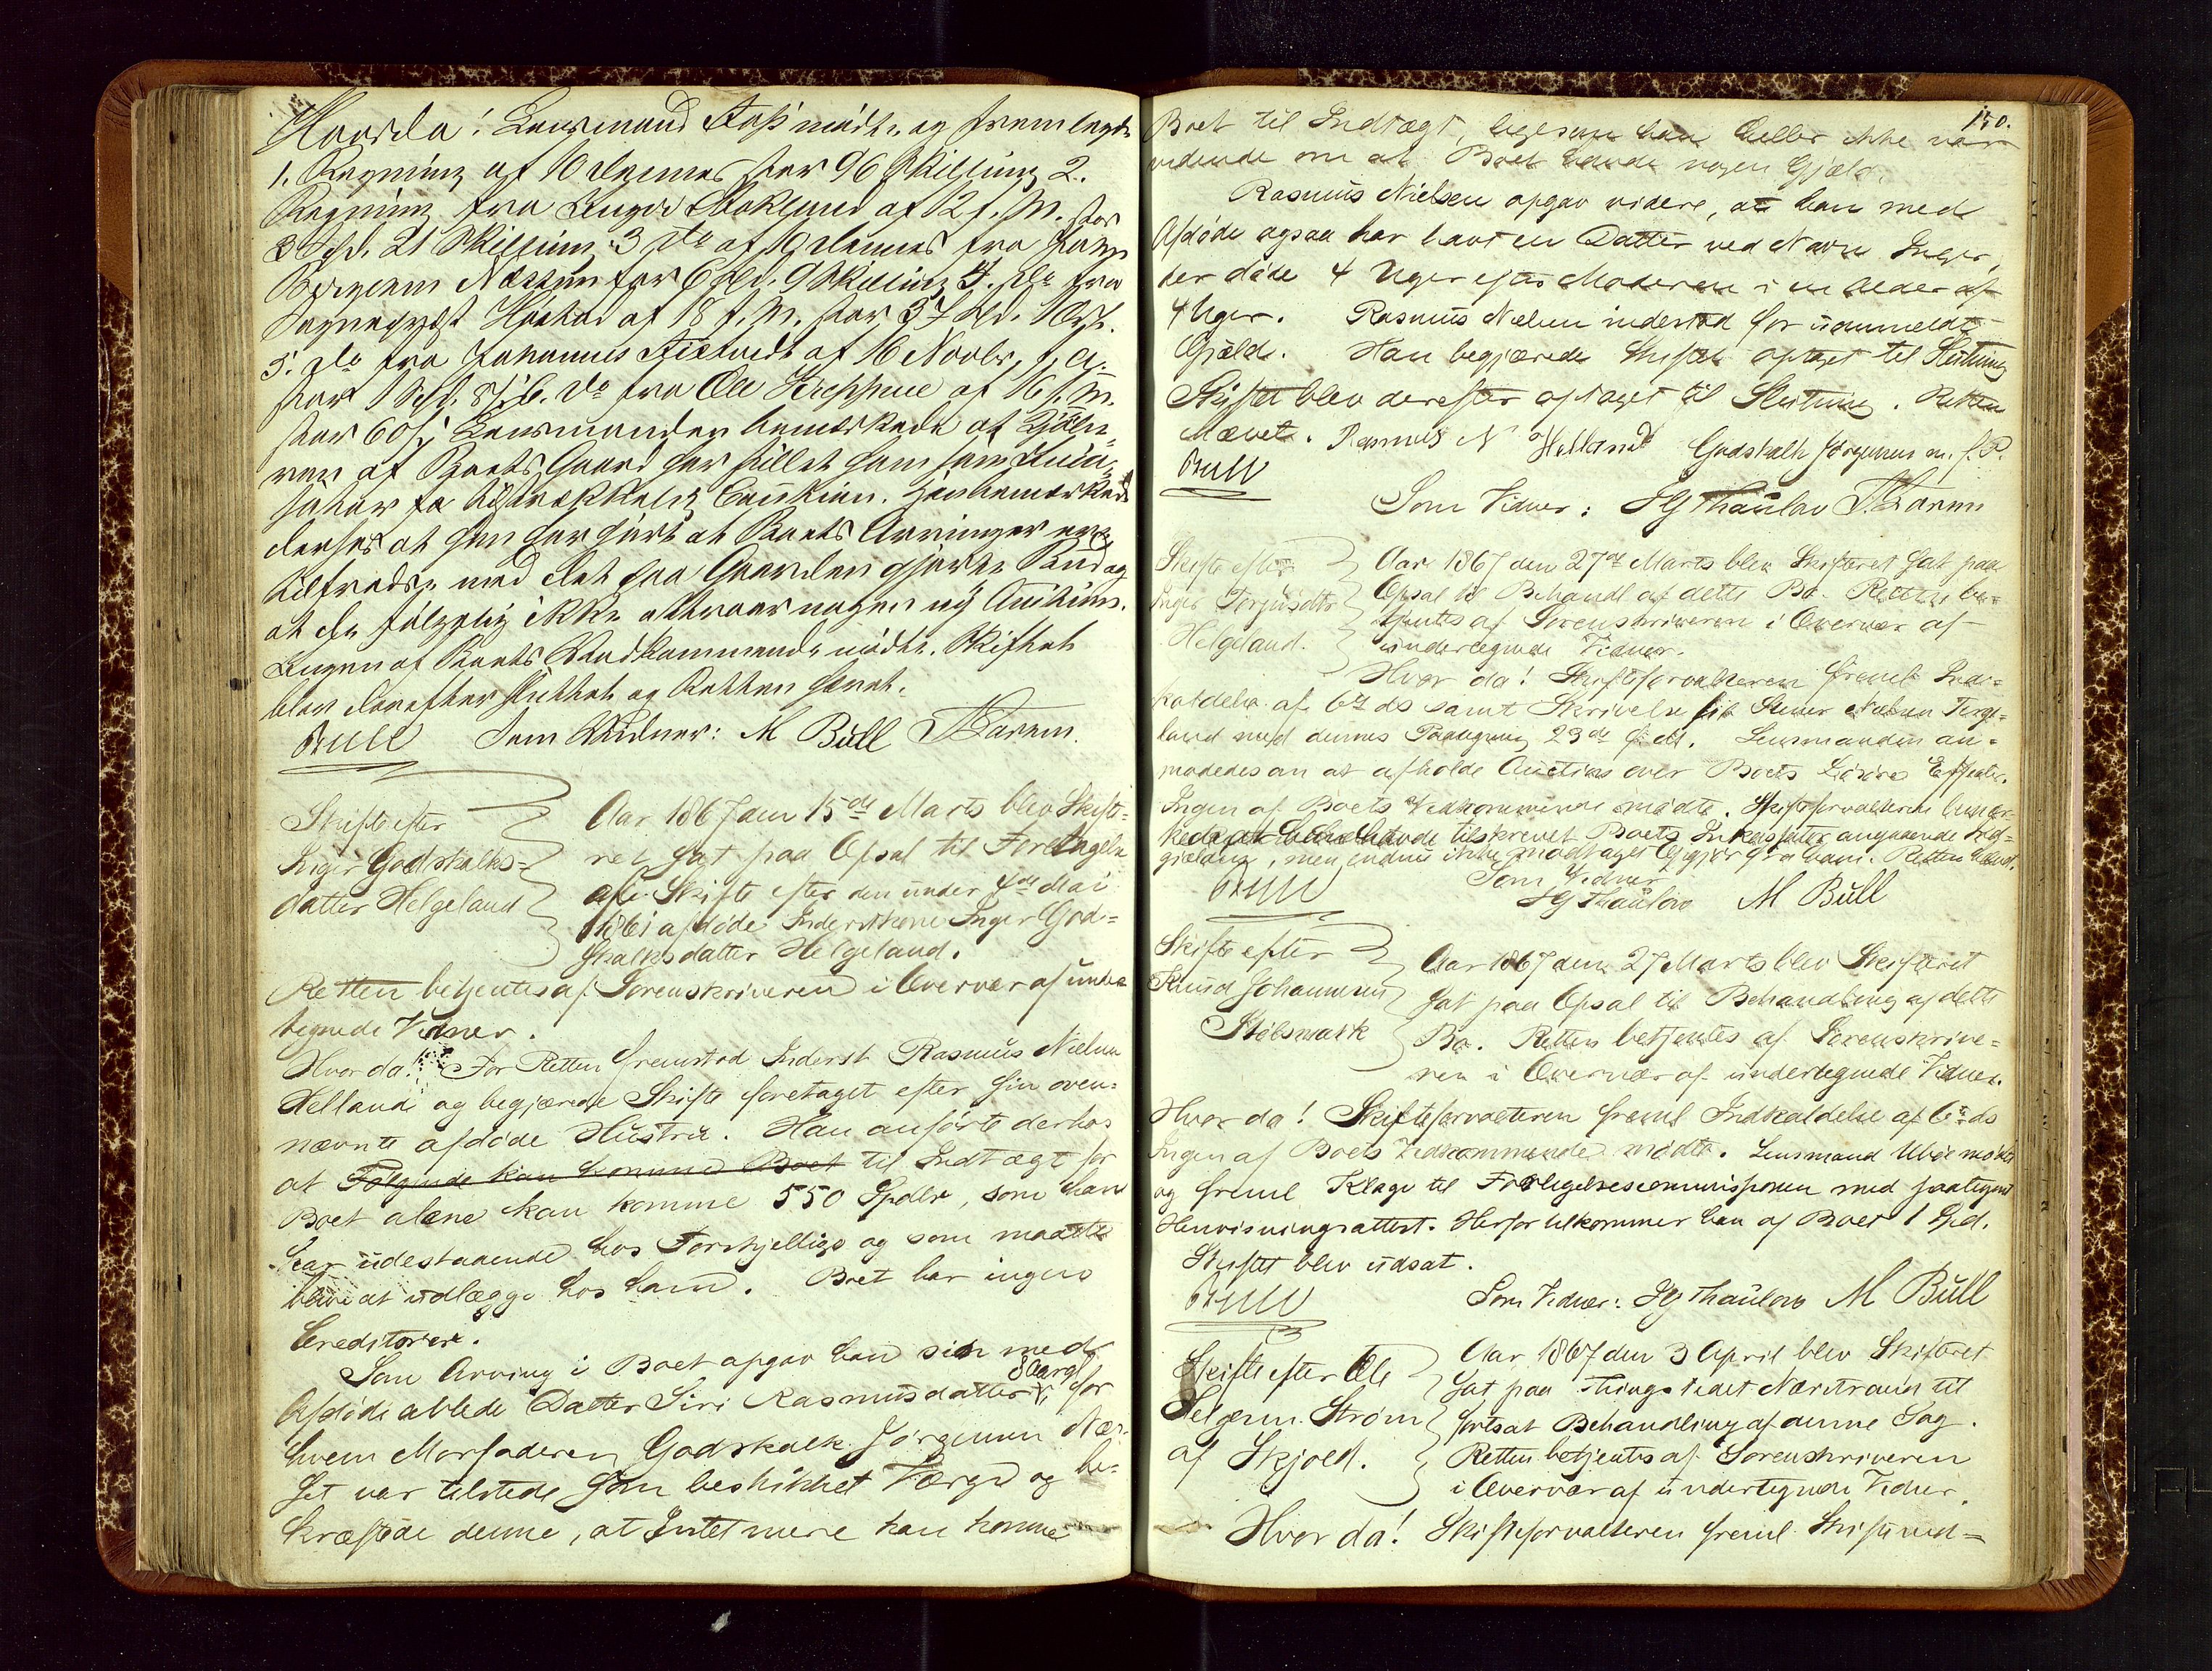 Hvorda! Lensmand Aase mødte og fremlagde
1. Regning af 10 dennes stor 96 Skilling 2.
Regning fra Stokland af 12 f. M. stor
3 Spd. 21 Skilling, 3 do af 19 dennes fra
Næstun stor 6 Spd. 9 Skilling 4. do fra
af 18 f. M. stor 3
5. do fra Johannes af 16 Novbr. f. A.
stor 1 Spd. 6. do fra Ole af 16 f. M.
stor 60 s; Lensmanden bemærkede at
ren af Boets Gaard har stillet ham som
for Caution. Han bemærkede
derhos at han har hørt at Boets Arvinger ere
tilfredse med det paa Gaarden gjorte Bud og
at de følgelig ikke attraar nogen ny Auktion.
Ingen af Boets Vedkommende mødte. Skiftet
blev derefter sluttet og Retten hævet.
Bull Som Vidner: M Bull
Skifte efter
Inger Godskalks-
datter Helgeland
Aar 1867 den 15de Marts blev Skifte-
ret sat paa Opsal til Foretagelse
af Skifte efter den under 4de Mai
1861 afdøde Inderstkone Inger God-
skalksdatter Helgeland.
Retten betjentes af Sorenskriveren i Overvær af under-
tegnede Vidner.
Hvor da! For Retten fremstod Inderst Rasmus Nielsen
Helland og begjærede Skifte foretaget efter sin oven-
nævnte afdøde Hustru. Han anførte derhos
at Følgende kan komme Boet til Indtægt for
Boet alene kan komme 550 Spdlr, som han
har udestaaende hos Forskjellige og som maatte
blive at udlægge hos ham. Boet har ingen
Creditorer.
Som Arving i Boet opgav han sin med
Afdøde avlede Datter Siri Rasmusdatter, 8 Aar gl for
hvem Morfaderen Godskalk Jørgensen
set var tilstede som beskikket Værge og be-
kræftede denne, at Intet mere kan komme
150.
Boet til Indtægt, ligesom han heller ikke var
vidende om at Boet havde nogen Gjæld.
Rasmus Nielsen opgav videre, at han med
Afdøde ogsaa har havt en Datter ved Navn Inger,
der døde 4 Uger efter Moderen i en Alder af
4 Uger. Rasmus Nielsen indestod for uanmeldt
Gjæld. Han begjærede Skiftet optaget til Slutning
Skiftet blev derefter optaget til Slutning. Retten
hævet. Rasmus N Helland Godskalk Jørgensen m. f. P.
Bull
Som Vidner: HG Thaulow
Skifte efter
Inger Torgusdtr
Helgeland.
Aar 1867 den 27de Marts blev Skifteret sat paa
Opsal til Behandl af dette Bo. Retten be-
tjentes af Sorenskriveren i Overvær af
undertegnede Vidner.
Hvor da! Skifteforvalteren freml. Ind-
kaldelse af 6te ds samt Skrivelse til Stener Nielsen
land med dennes Paategning 23de ds. Lensmanden an-
modedes om at afholde Auction over Boets Løsøre Effecter.
Ingen af Boets Vedkommende mødte. Skifteforvalteren bemær-
kede at han havde tilskrevet Boets angaaende Ind-
gjælden, men endnu ikke modtaget fra ham. Retten hævet.
Bull
Som Vidner
HG Thaulow M Bull
Skifte efter
Knud Johannesen
Stølsmark
Aar 1867 den 27 Marts blev Skifteret
sat paa Opsal til Behandling af dette
Bo. Retten betjentes af Sorenskrive-
ren i Overvær af undertegnede Vidner.
Hvor da! Skifteforvalteren freml Indkaldelse af 6te ds
Ingen af Boets Vedkommende mødte. Lensmand Ubøe mødte
og freml Klage til Forligelsescommissionen med paategnet
Henvisningsattest. Herfor tilkommer han af Boet 1 Spd.
Skiftet blev udsat.
Bull
Som Vidner: HG Thaulow M Bull
Skifte efter Ole
Strøm
af Skjold.
Aar 1867 den 3 April blev Skifteret
sat paa Thingstedet Nærstrand til
fortsat Behandling af denne Sag.
Retten betjentes af Sorenskriveren
i Overvær af undertegnede Vidner.
Hvor da! Skifteforvalteren freml.